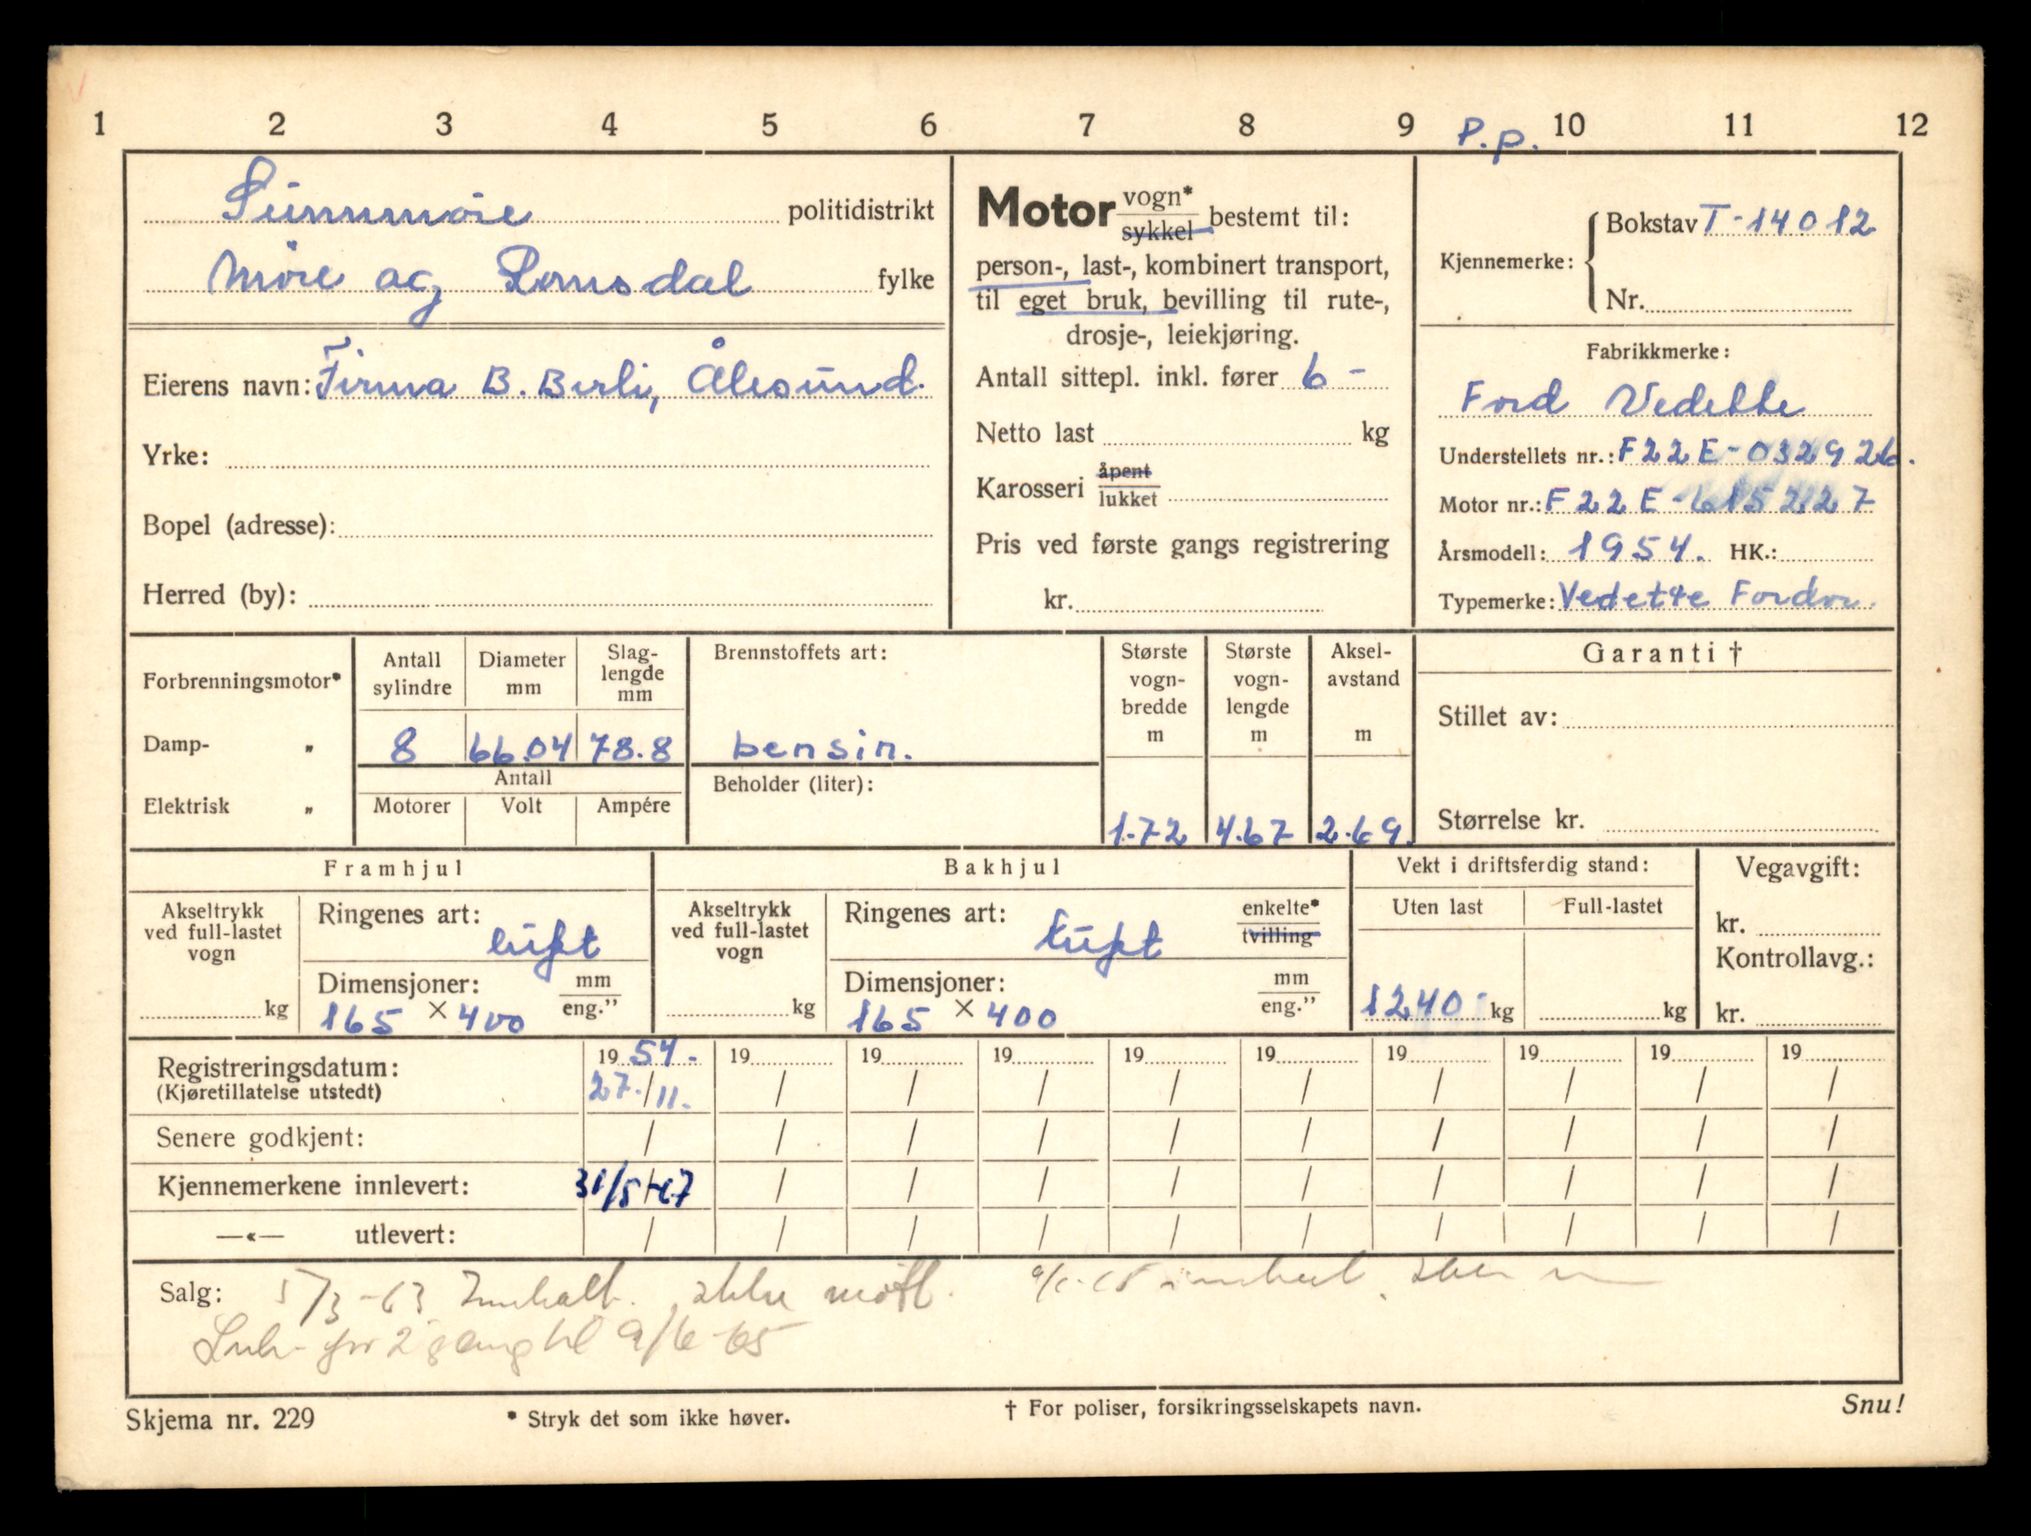 1 2 3 4 5 6 7 8 9 P.p. 10 11 12
Sunnmøre politidistrikt
Møre og Romsdal fylke
Eierens navn: Firma B. Berli, Ålesund.
Yrke:
Bopel (adresse):
Herred (by):
Motor vogn* sykkel bestemt til:
person-, last-, kombinert transport,
til eget bruk, bevilling til rute-,
drosje-, leiekjøring.
Antall sittepl. inkl. fører 6 -
Netto last kg
Karosseri åpent lukket
Pris ved første gangs registrering
kr.
Kjennemerke: Bokstav T-14012
Nr.
Fabrikkmerke:
Ford Vedette
Understellets nr.: F22E-032926.
Motor nr.: F22E-
Årsmodell: 1954. HK.:
Typemerke: Vedette Fordor
Forbrenningsmotor*
Damp- „
Elektrisk „
Antall sylindre
Diameter mm
Slag-
lengde
mm
8 66.04 78.8
Antall
Motorer Volt Ampére
Brennstoffets art:
bensin.
Beholder (liter):
Største
vogn-
bredde
m
1.72
Største
vogn-
lengde
m
4.67
Aksel-
avstand
m
2.69.
Garanti †
Stillet av:
Størrelse kr.
Framhjul
Akseltrykk
ved full-lastet
vogn
kg
Ringenes art:
luft
Dimensjoner: mm eng.”
165 × 400
Bakhjul
Akseltrykk
ved full-lastet
vogn
kg
Ringenes art: enkelte* tvilling
luft
Dimensjoner: mm eng.”
165 × 400
Vekt i driftsferdig stand:
Uten last Full-lastet
1240 kg kg
Vegavgift:
kr.
Kontrollavg.:
kr.
Registreringsdatum: 19 54.- 19 19 19 19 19 19 19 19 19
(Kjøretillatelse utstedt) 27./11. / / / / / / / / /
Senere godkjent: / / / / / / / / / /
Kjennemerkene innlevert: 31/5-67 / / / / / / / / /
—«— utlevert: / / / / / / / / / /
Salg: 5/3-63 Innkalt. ikke møtt.
for 2 gang til 9/6-65
Skjema nr. 229 * Stryk det som ikke høver. † For poliser, forsikringsselskapets navn. Snu!